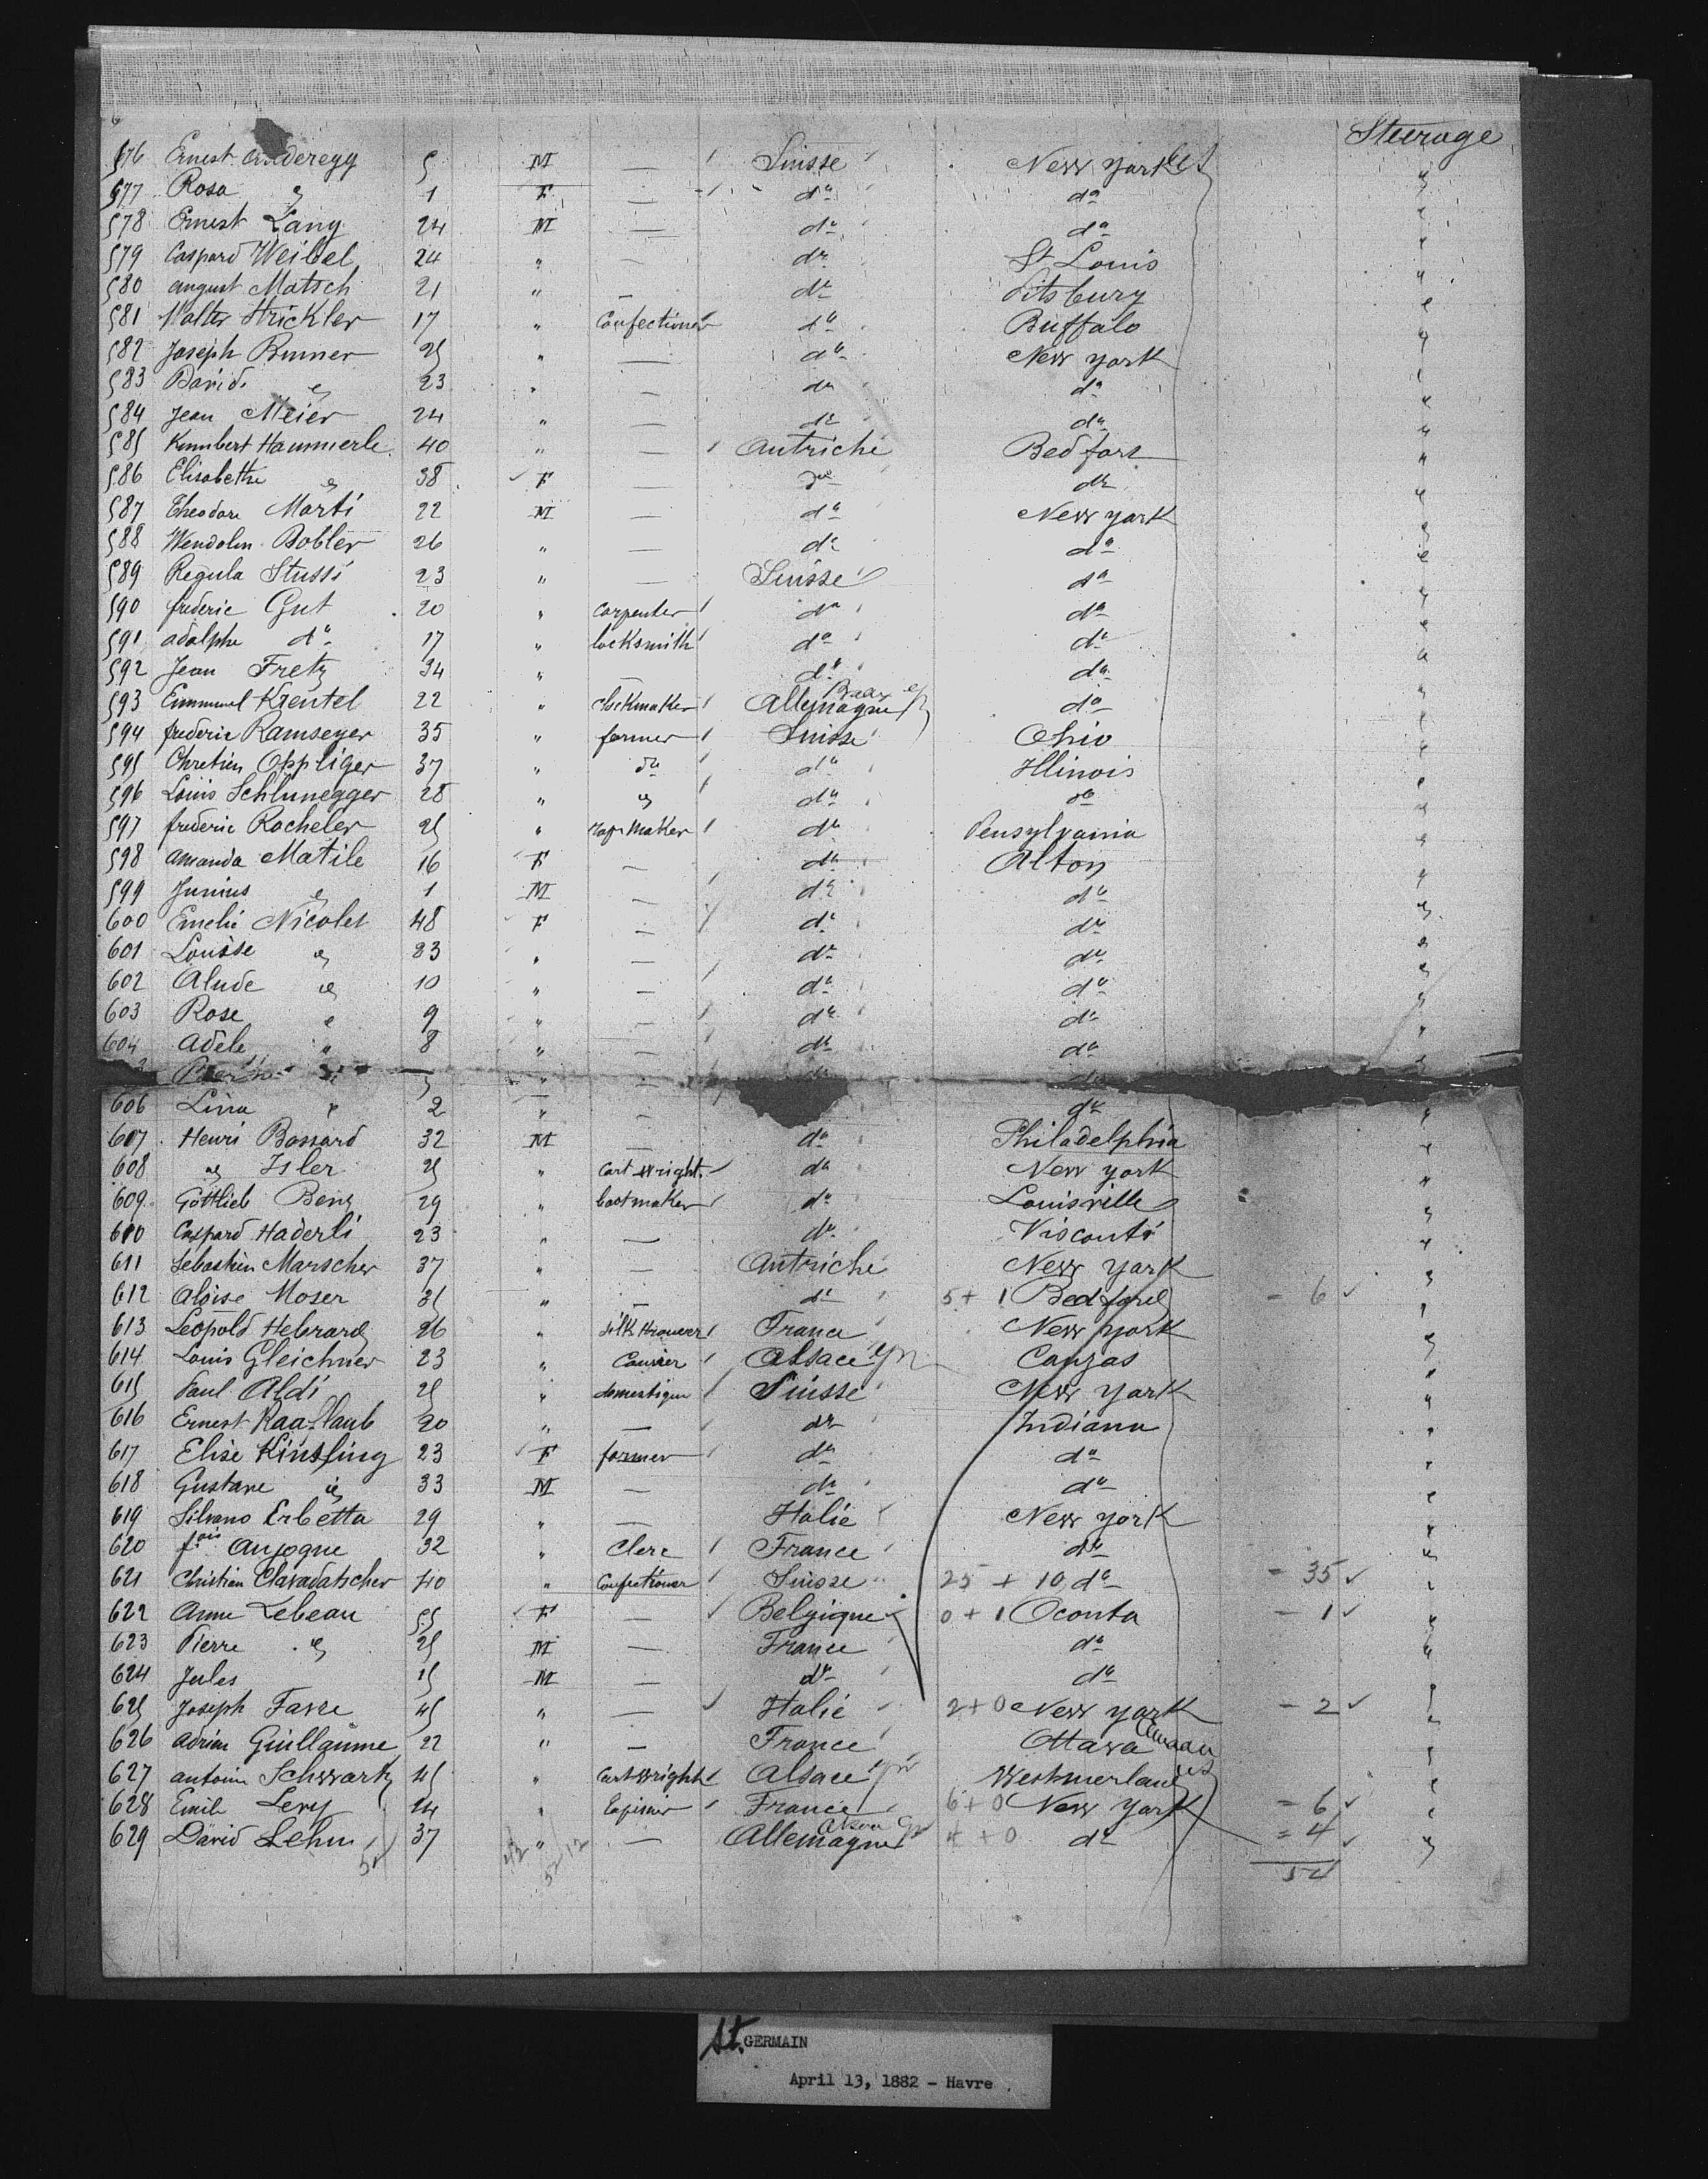 Steerage
576 Ernest Anderegg 5 M — Suisse New York US "
577 Rosa " 1 F — do do "
578 Ernest Lang 24 M — do do "
579 Caspard Weibel 24 " — do St Louis "
580 august Matsch 21 " — do Pitsburg "
581 Walter Strickler 17 " Confectioner do Buffalo "
582 Joseph Brunner 25 " — do New York "
583 David " 23 " — do do "
584 Jean Meier 24 " — do do "
585 Kunnbert Hammerle 40 " — Autriche Bedford "
586 Elisabethe " 38 F — do do "
587 Theodore Marti 22 M — do New york "
588 Wendolin Bobler 26 " — do do "
589 Regula Stussi 23 " — Suisse do "
590 frederic Gut 20 " carpenter do do "
591 adolphe do 17 " locksmith do do "
592 Jean Fretz 34 " — do do "
593 Emmanuel Krentel 22 " clockmaker Allemagne do "
594 frederic Ramseyer 35 " farmer Suisse Ohio "
595 Chretien Oppliger 37 " do do Illinois "
596 Louis Schlunegger 28 " " do do "
597 frederic Racheler 25 " maker do Pensylvania "
598 amanda Matile 16 F — do Alton "
599 Junius " 1 M — do do "
600 Emelie Nicolet 48 F — do do "
601 Louise " 23 " — do do "
602 Alude " 10 " — do do "
603 Rose " 9 " — do do "
604 adèle " 8 " — do do "
" 5 " — do do "
606 Lina " 2 " — do "
607 Henri Bossard 32 M — do Philadelphia "
608 " Isler 25 " Cart wright do New york "
609 Gottlieb Benz 29 " bootmaker do Louisville "
610 Caspard Haderli 23 " — do Visconti "
611 Sebastien Marscher 37 " — Autriche New York "
612 Aloise Moser 31 " — do 5 + 1 Bedford - 6 "
613 Leopold Hebrard 26 " silk France New York "
614 Louis Gleichner 23 " Courier Alsace Canzas "
615 Paul Aldi 25 " domestique Suisse New York "
616 Ernest Raaflaub 20 " — do Indiana "
617 Elise Kinsfing 23 F farmer do do "
618 Gustave " 33 M — do do "
619 Silvano Erbetta 29 " — Italie New york "
620 fois Anjogue 32 " Clerc France do "
621 Christian Clavadatscher 40 " Confectioner Suisse 25 + 10 do - 35 "
622 Anne Lebeau 55 F — Belgique 0 + 1 Oconta - 1 "
623 Pierre " 25 M — France do "
624 Jules 15 M — do do "
625 Joseph Favre 45 " — Italie 2 + 0 New york - 2 "
626 Adrien Guillaume 22 " — France Ottawa Canada "
627 antoine Schwartz 45 " Cartwright Alsace Westmerland US "
628 Emile Levy 24 " France 6 + 0 New York = 6 "
629 David Lehm 37 " — Allemagne 4 + 0 do = 4 "
54
St. GERMAIN
April 13, 1882 - Havre